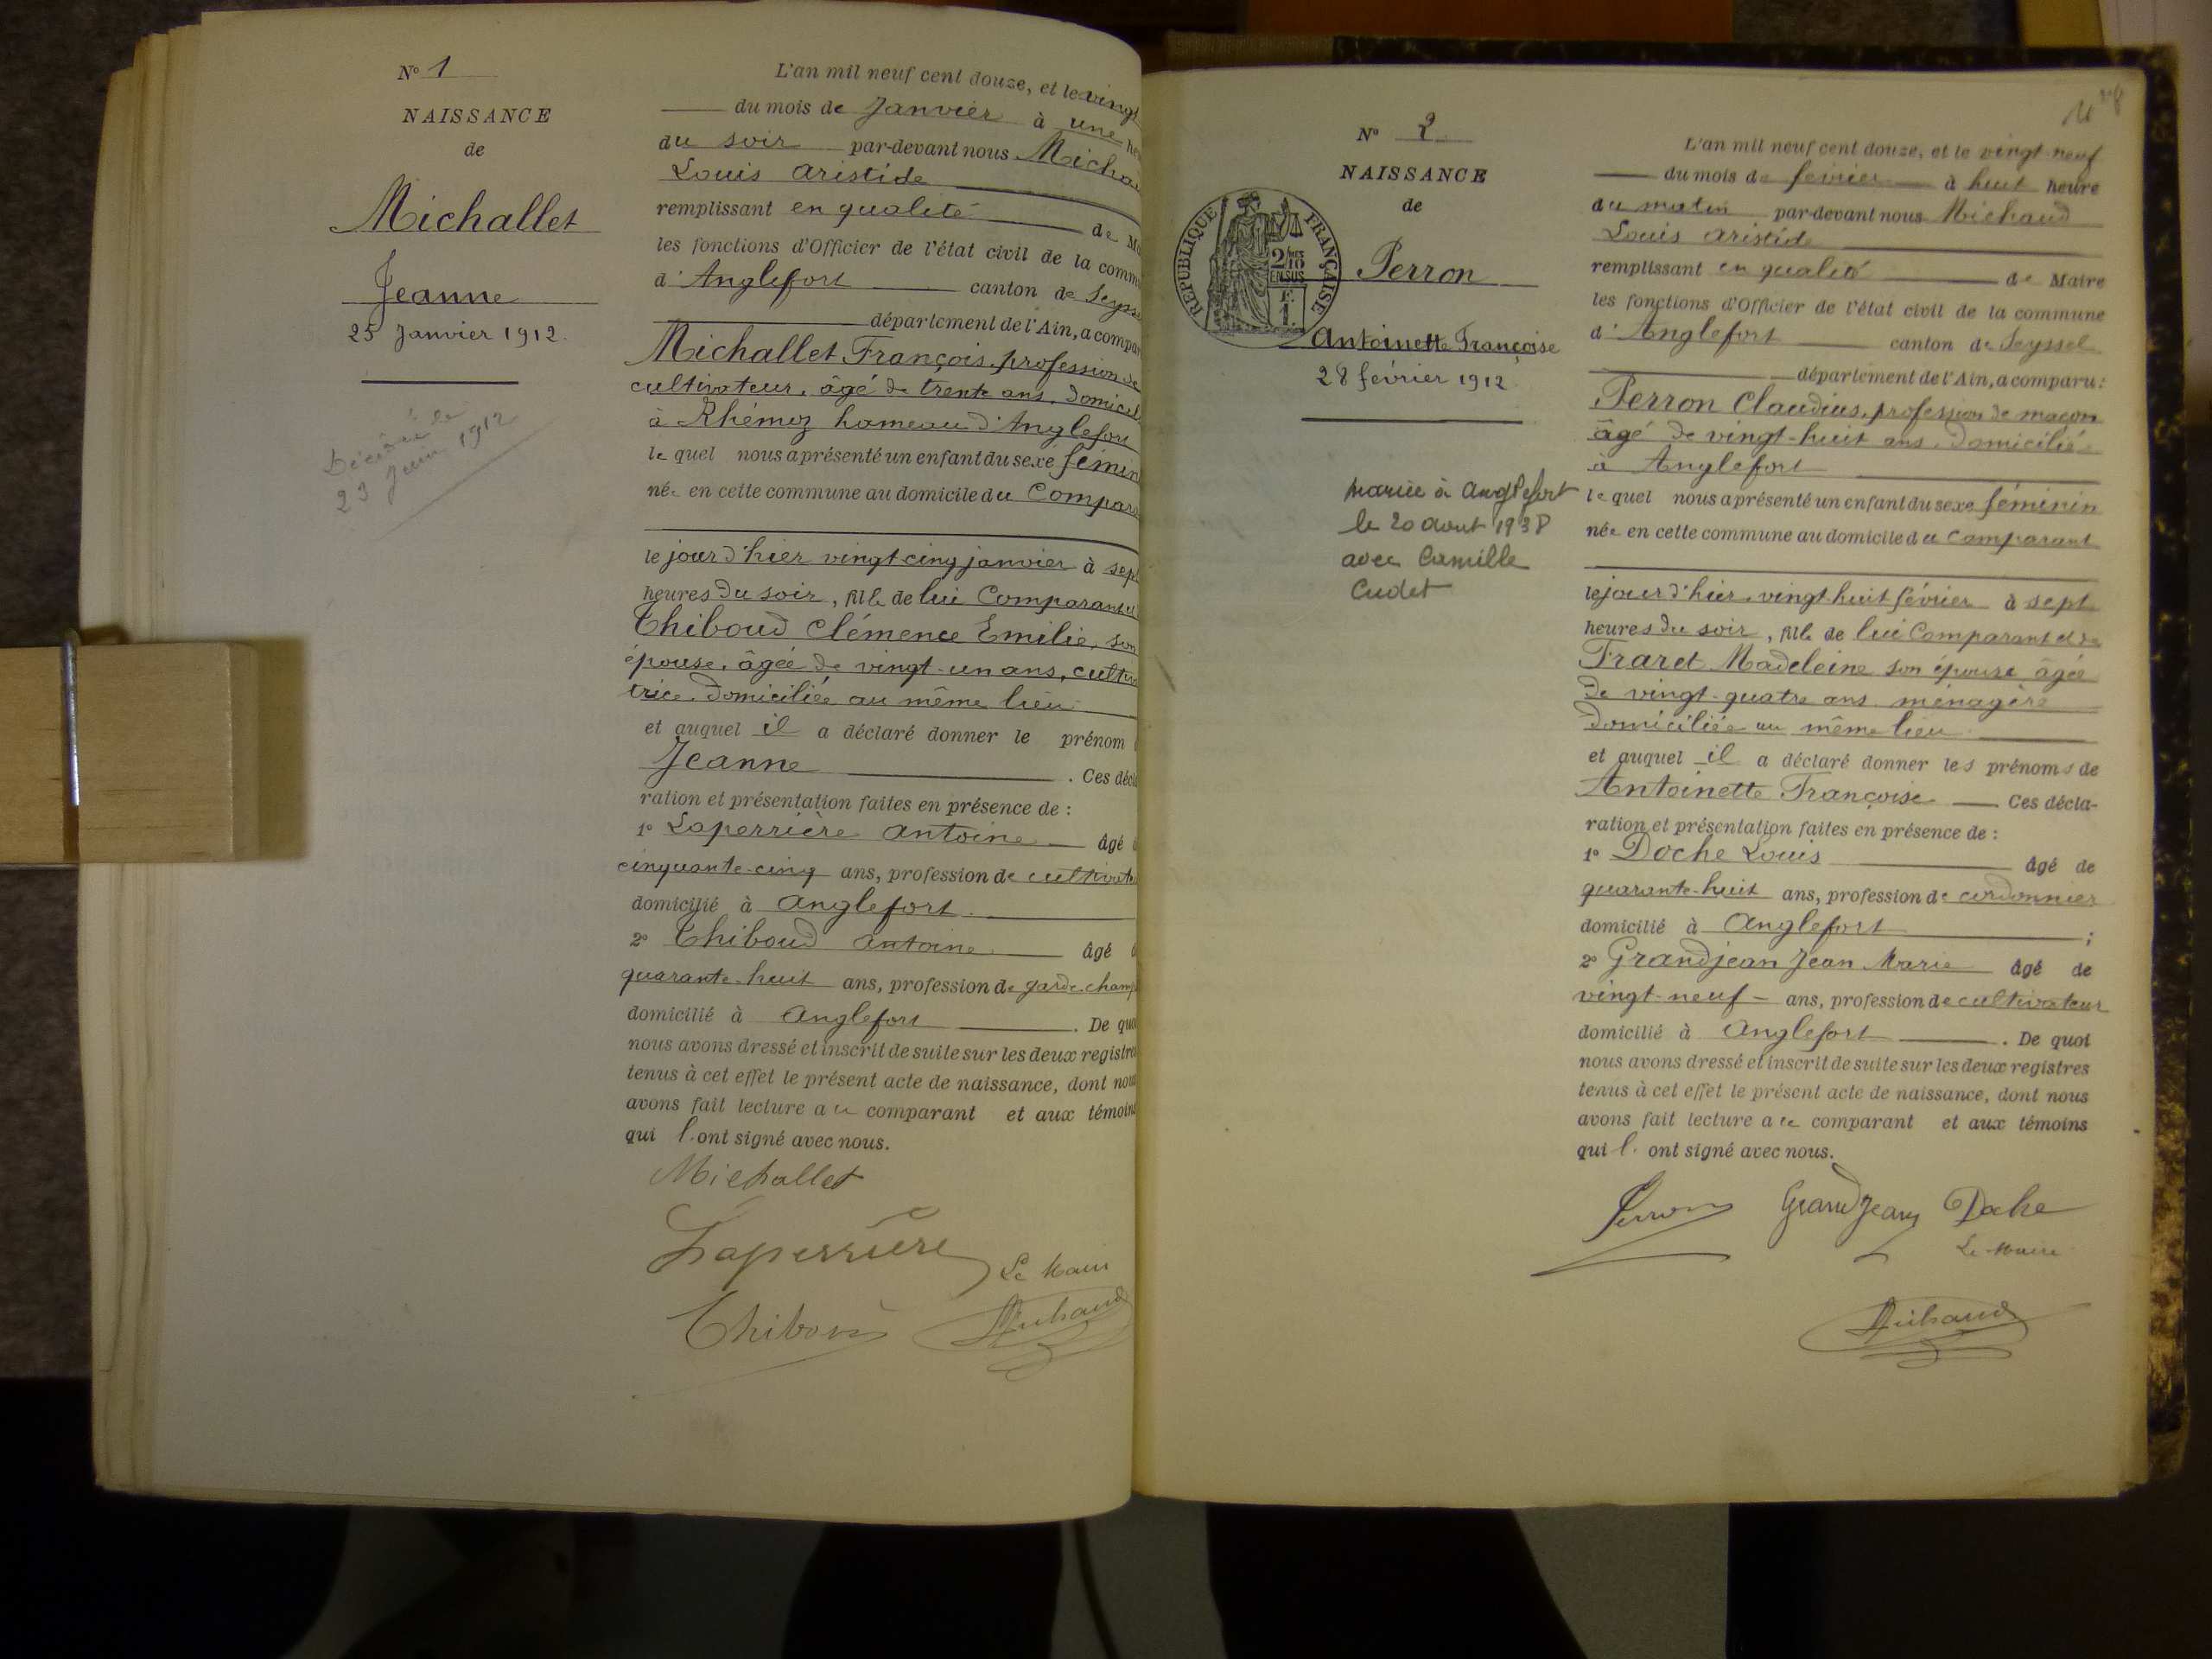 N° 1
NAISSANCE
de
Michallet
Jeanne
25 Janvier 1912.
Décédée le
23 Juin 1912
L'an mil neuf cent douze, et le vingt
du mois de Janvier à une
du soir par-devant nous
Louis Aristide
remplissant en qualité de
les fonctions d'Officier de l'état civil de la
d'Anglefort canton de
département de l'Ain, a
Michallet François, profession de
cultivateur, âgé de trente ans,
à Rhémoz hameau d'Anglefort
le quel nous a présenté un enfant du sexe
née en cette commune au domicile du
le jour d'hier vingt-cinq janvier à sept
heures du soir, fille de lui Comparant
Thiboud Clémence Emilie, son
épouse, âgée de vingt-un ans,
trice domiciliée au même lieu
et auquel il a déclaré donner le prénom
Jeanne . Ces
ration et présentation faites en présence de :
1° Laperrière Antoine âgé
cinquante-cinq ans, profession de
domicilié à Anglefort.
2° Thiboud Antoine âgé
quarante-huit ans, profession de garde
domicilié à Anglefort . De
nous avons dressé et inscrit de suite sur les deux
tenus à cet effet le présent acte de naissance, dont
avons fait lecture au comparant et aux
qui l'ont signé avec nous.
Michallet
Laperrière
Le Maire
Thiboud Michaud
N° 2
NAISSANCE
de
RÉPUBLIQUE FRANÇAISE
2/10
EN SUS
F.
1.
Perron
Antoinette Françoise
28 février 1912
mariée à Anglefort
le 20 aout 1938
avec Camille
Cudet
L'an mil neuf cent douze, et le vingt-neuf
du mois de février à huit heure
du matin par-devant nous Michaud
Louis Aristide
remplissant en qualité de Maire
les fonctions d'Officier de l'état civil de la commune
d'Anglefort canton de Seyssel
département de l'Ain, a comparu :
Perron Claudius, profession de maçon
âgé de vingt-huit ans, domicilié
à Anglefort
le quel nous a présenté un enfant du sexe féminin
née en cette commune au domicile du Comparant
le jour d'hier, vingt-huit février à sept
heures du soir, fille de lui Comparant et de
Fraret Madeleine son épouse âgée
de vingt-quatre ans ménagère
domiciliée au même lieu
et auquel il a déclaré donner les prénoms de
Antoinette Françoise Ces décla-
ration et présentation faites en présence de :
1° Doche Louis âgé de
quarante-huit ans, profession de cordonnier
domicilié à Anglefort ;
2° Grandjean Jean Marie âgé de
vingt-neuf ans, profession de cultivateur
domicilié à Anglefort . De quoi
nous avons dressé et inscrit de suite sur les deux registres
tenus à cet effet le présent acte de naissance, dont nous
avons fait lecture au comparant et aux témoins
qui l'ont signé avec nous.
Perron Grandjean Doche
Le Maire
Michaud